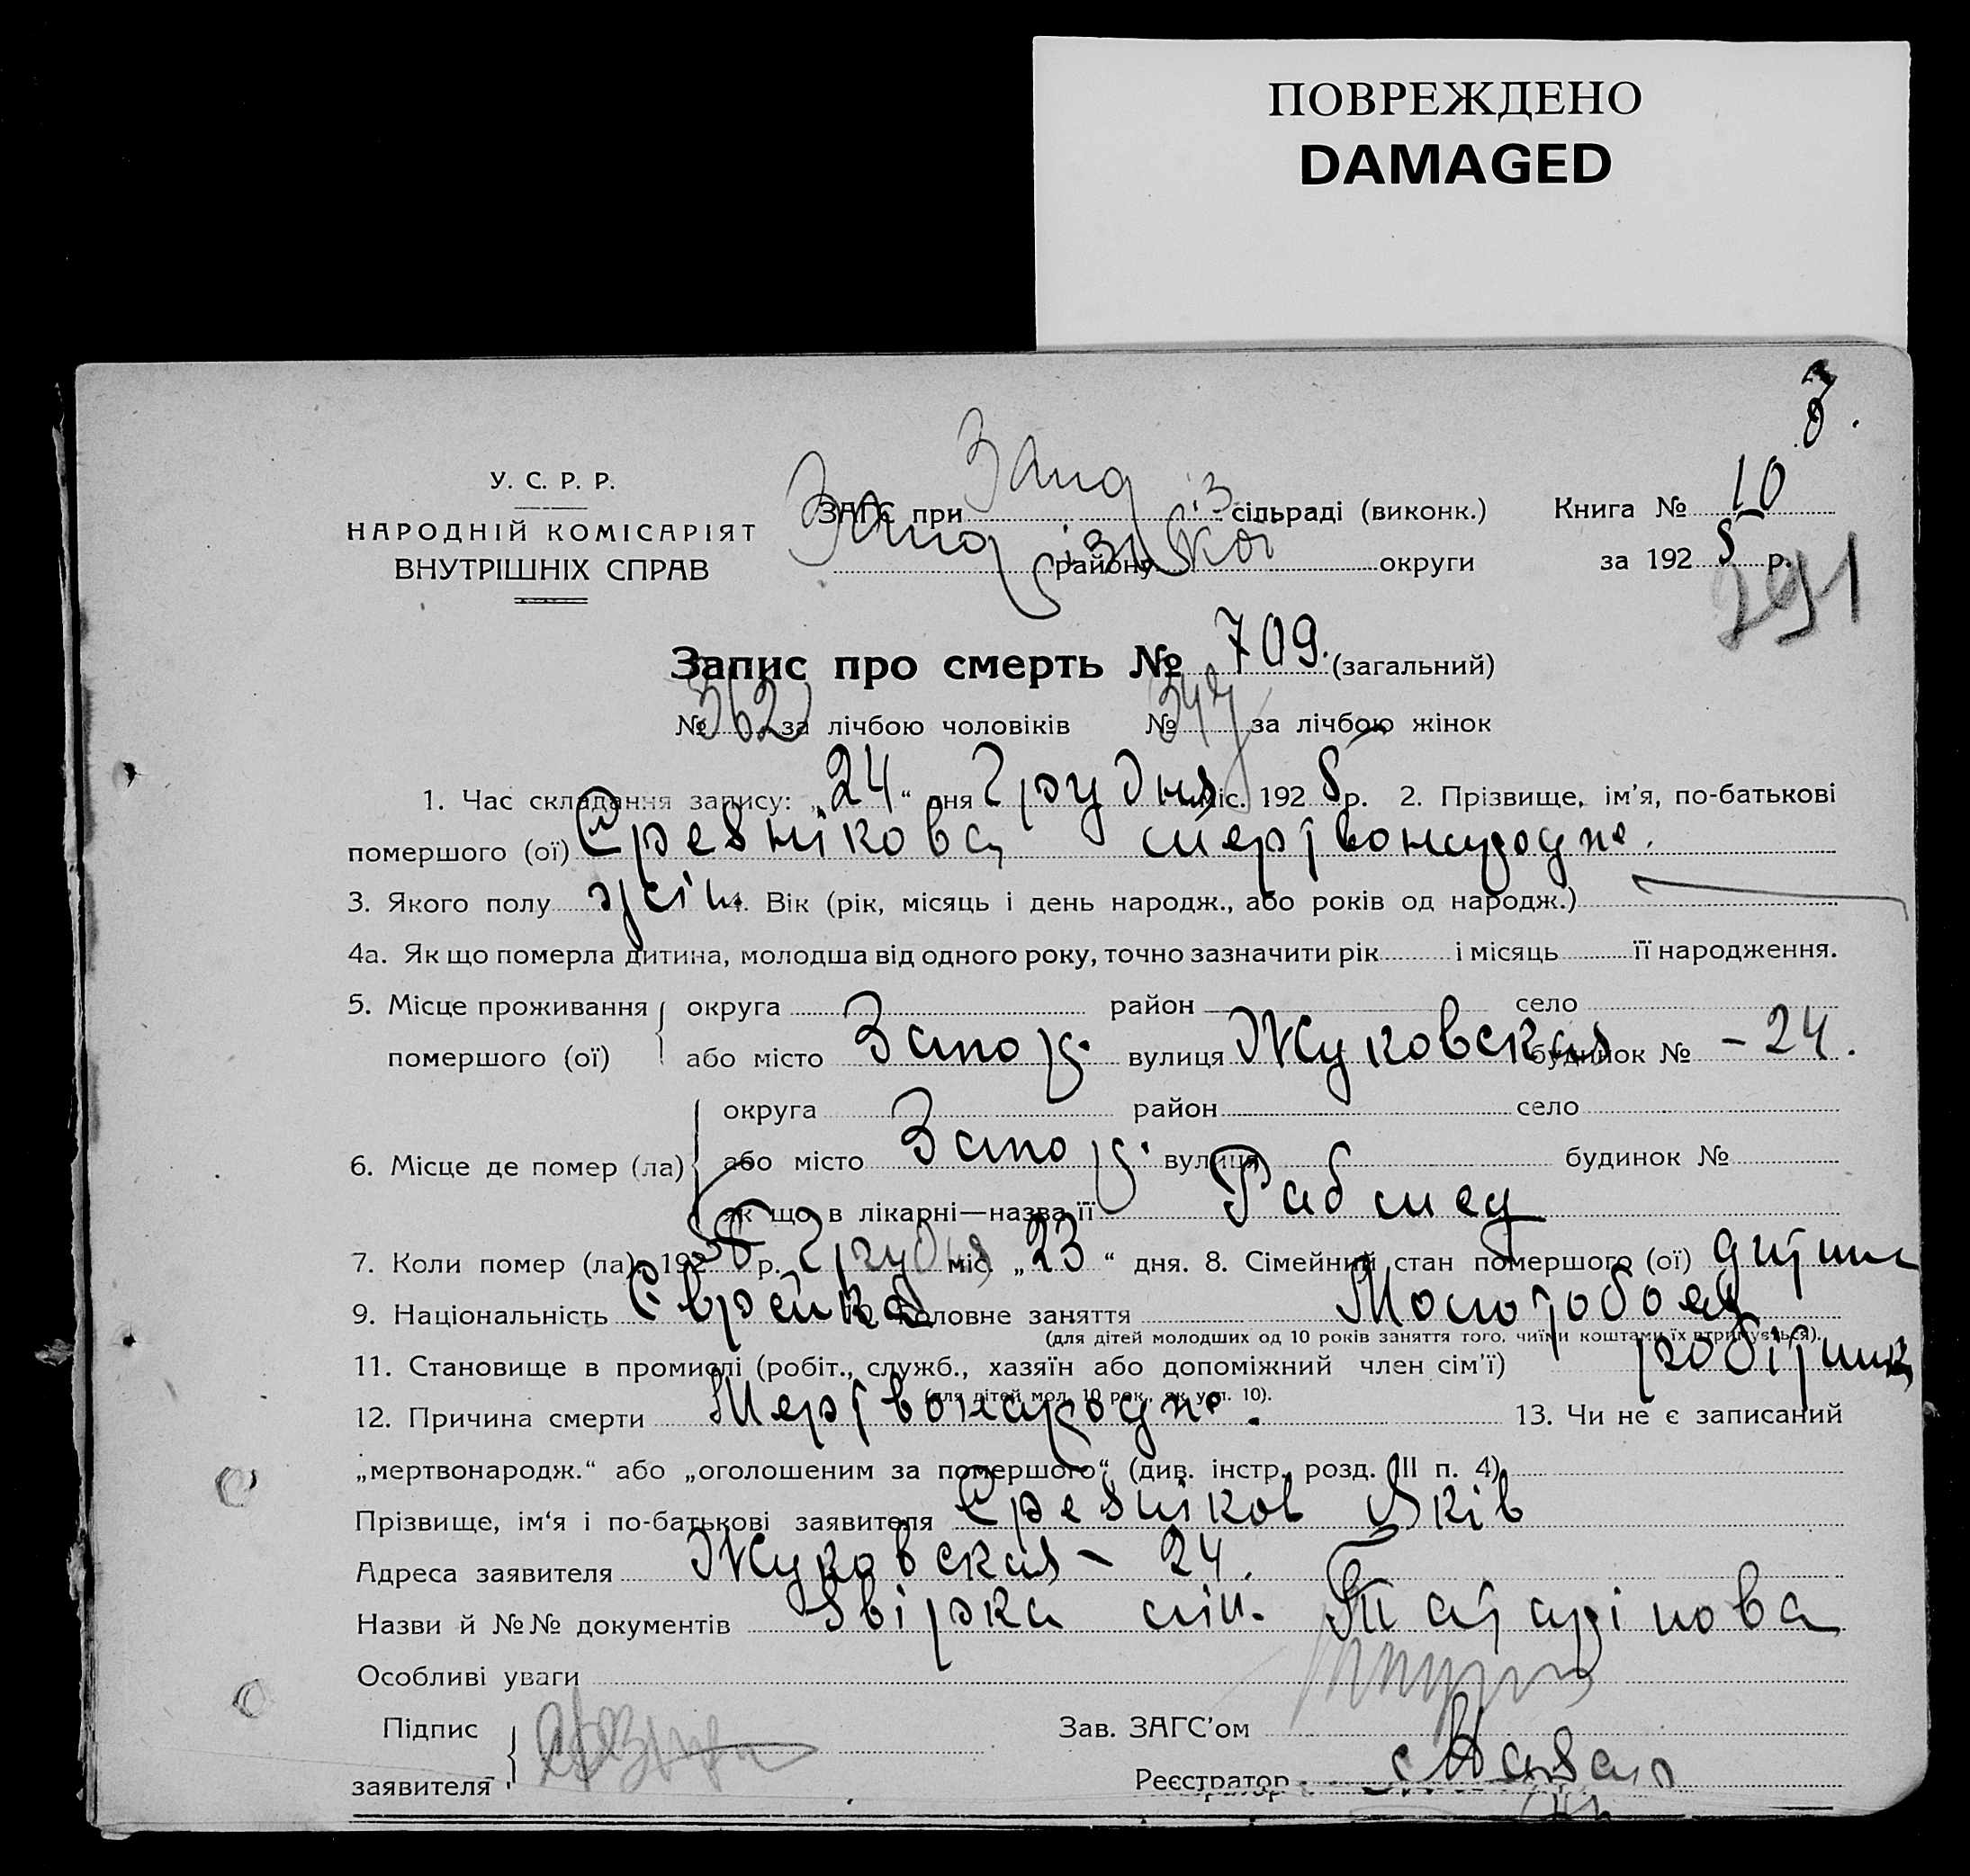 ПОВРЕЖДЕНО
DAMAGED
У. С. Р. Р.
НАРОДНІЙ КОМІСАРІЯТ
ВНУТРІШНІХ СПРАВ
ЗАГС при сільраді (виконк.)
району округи
Книга № 10
за 1928 р.
291
Запис про смерть № 709. (загальний)
№ 362 за лічбою чоловіків № 347 за лічбою жінок
1. Час складання запису: „24“ дня Грудня міс. 1928 р. 2. Прізвище, ім’я, по-батькові
помершого (ої) Єрезнікова мертвонародже.
3. Якого полу жін. 4. Вік (рік, місяць і день народж., або років од народж.)
4а. Як що померла дитина, молодша від одного року, точно зазначити рік і місяць її народження.
5. Місце проживання округа район село
помершого (ої) або місто Запоріж. вулиця Жуковская будинок № - 24.
округа район село
6. Місце де помер (ла) або місто Запоріж. вулиця будинок №
як що в лікарні—назва її Рабмед
7. Коли помер (ла) 1928 р. Грудня міс. „23“ дня. 8. Сімейний стан помершого (ої) дитина
9. Національність Єврейка 10. Головне заняття Молотобоец
(для дітей молодших од 10 років заняття того, чиїми коштами їх втримується).
11. Становище в промислі (робіт., служб., хазяїн або допоміжний член сім’ї) робітник
(для дітей мол. 10 рок., як у п. 10).
12. Причина смерти Мертвонародже. 13. Чи не є записаний
„мертвонародж.“ або „оголошеним за помершого“ (див. інстр. розд. III п. 4)
Прізвище, ім‘я і по-батькові заявителя Єрезніков Яків
Адреса заявителя Жуковская - 24.
Назви й №№ документів Звірка Татарінова
Особливі уваги
Підпис Зав. ЗАГС’ом
заявителя Реєстратор